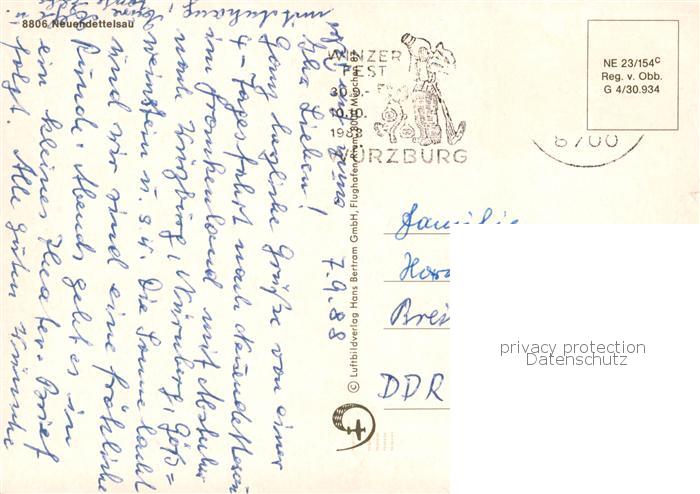 8806 Neuendettelsau
7.9.88
Ihr Lieben!
Ganz herzliche Grüße von einer
4-Tagesfahrt nach Neuendettelsau
im Frankenland mit Abstecher
nach Würzburg, Nürnberg, Göß=
weinstein u.s.w. Die Sonne lacht
und wir sind eine fröhliche
Runde. Abends geht es in
ein kleines Theater. Brief
folgt. Alle guten Wünsche
WINZER
FEST
30.9.-
10.10.
1988
WÜRZBURG
8700
NE 23/154c
Reg. v. Obb.
G 4/30.934
© Luftbildverlag Hans Bertram GmbH, Flughafen Riem, 8000 München 87
Familie
Brei
DDR
privacy protection
Datenschutz